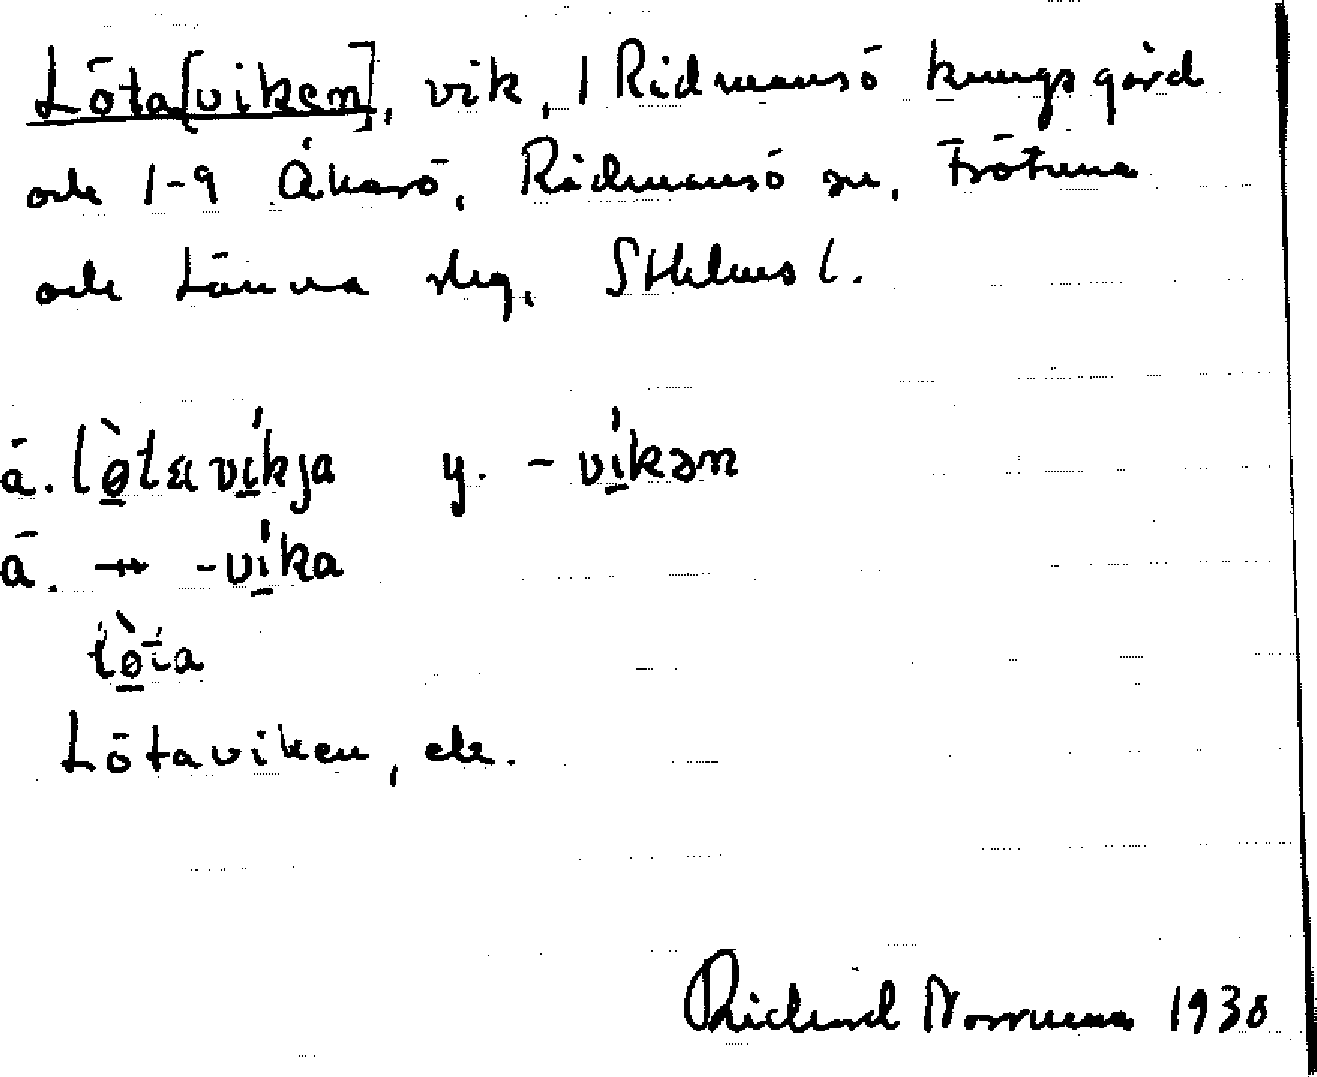 Löta[viken], vik, 1 Rådmansö kungsgård
och 1-9 Åkarö, Rådmansö sn, Frötuna
och Länna skg, Sthlms l.
ä. lø̀tavíkja y. -víkən
ä. → -víka
lø̀ta
Lötaviken, ek.
Rickard Norruna 1930